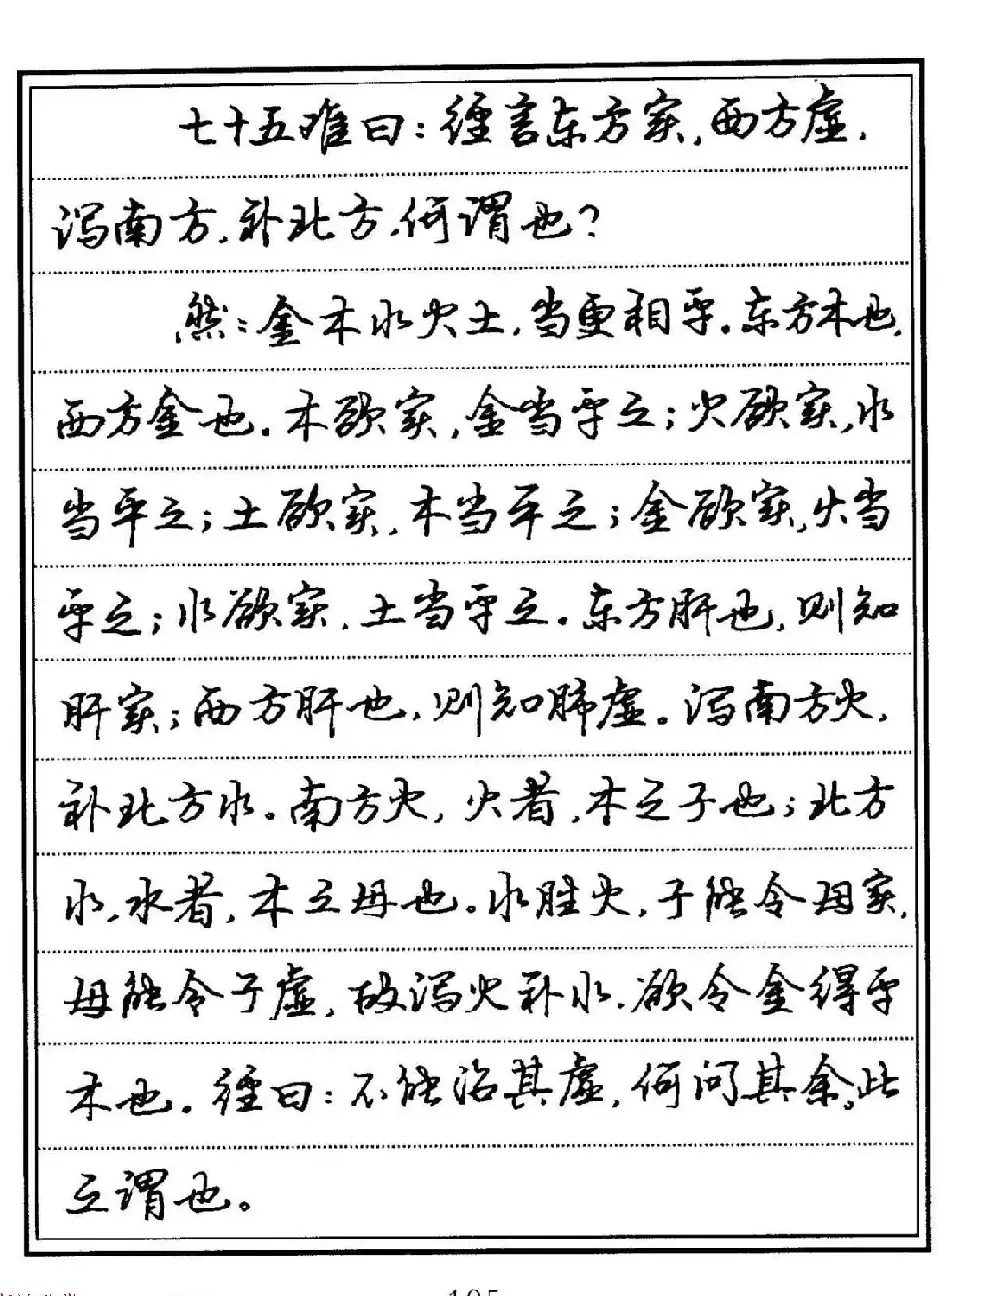 七十五难曰：经言东方实，西方虚，
泻南方，补北方，何谓也？
然：金木水火土，当更相平。东方木也，
西方金也。木欲实，金当平之；火欲实，水
当平之；土欲实，木当平之；金欲实，火当
平之；水欲实，土当平之。东方肝也，则知
肝实；西方肝也，则知肺虚。泻南方火，
补北方水。南方火，火者，木之子也；北方
水，水者，木之母也。水胜火，子能令母实，
母能令子虚，故泻火补水，欲令金得平
木也。经曰：不能治其虚，何问其余。此
之谓也。
105